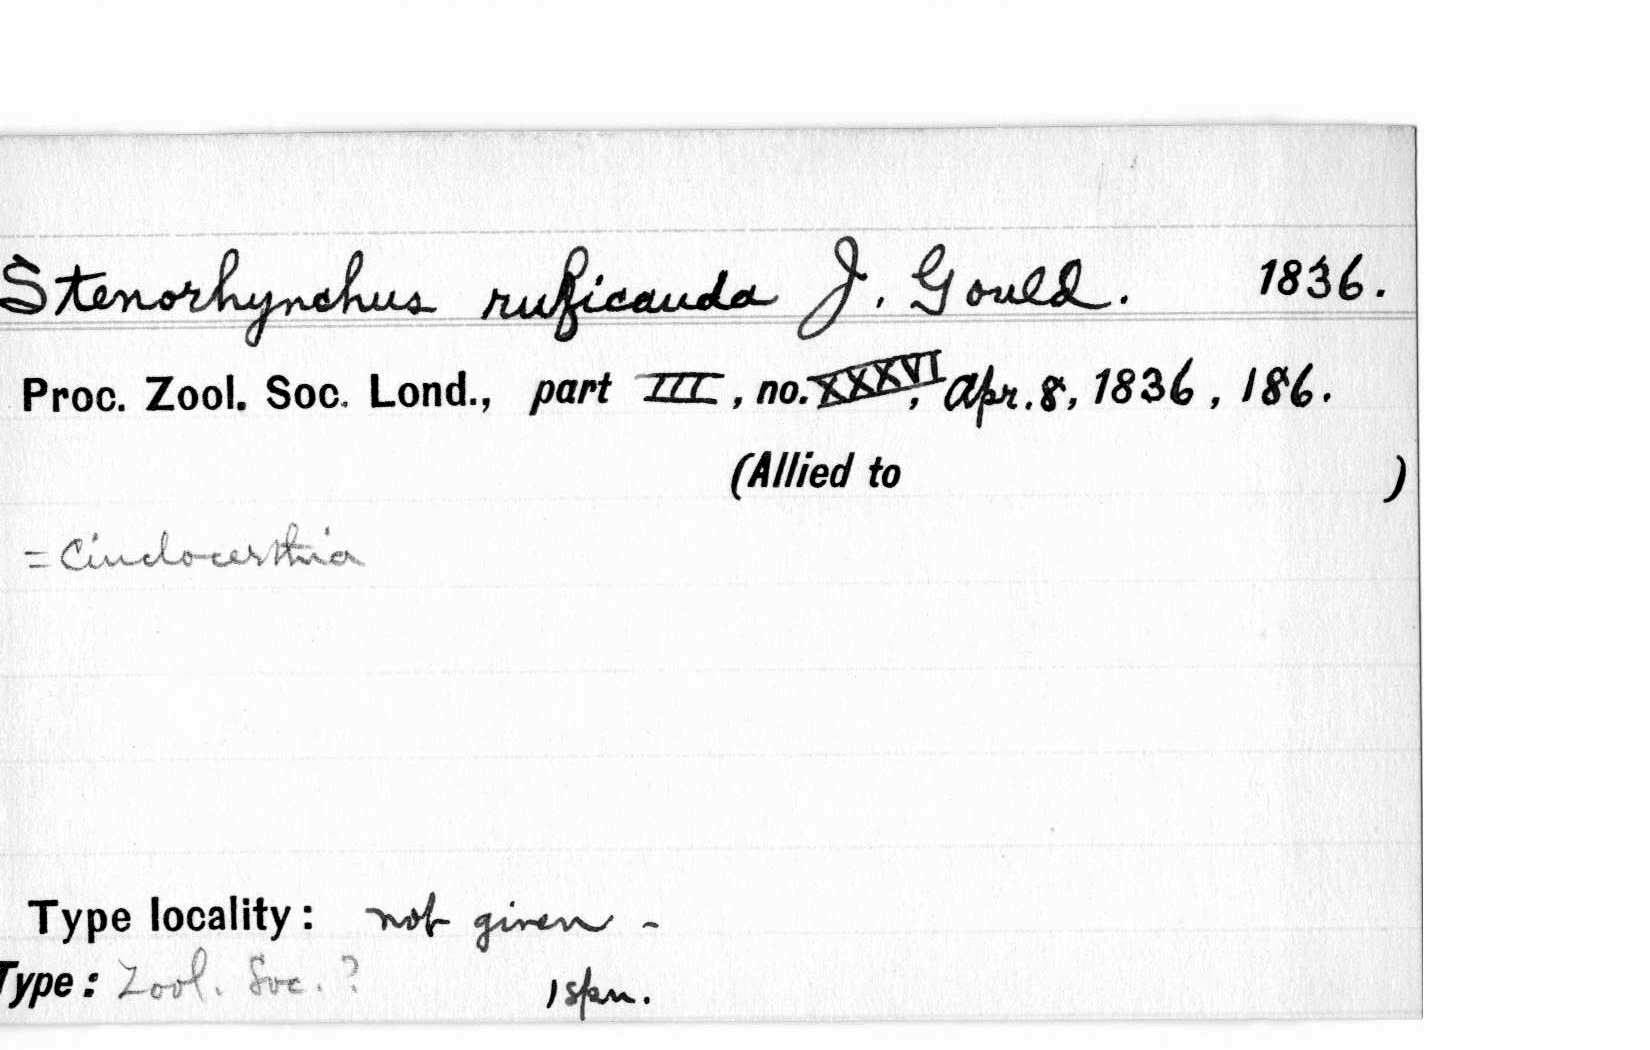 Stenorhynchus ruficauda J. Gould. 1836.
Proc. Zool. Soc. Lond., part III, no. XXXVI, Apr. 8, 1836, 186.
(Allied to )
= Cinclocerthia
Type locality: not given -
Type: Zool. Soc. ? 1 spn.